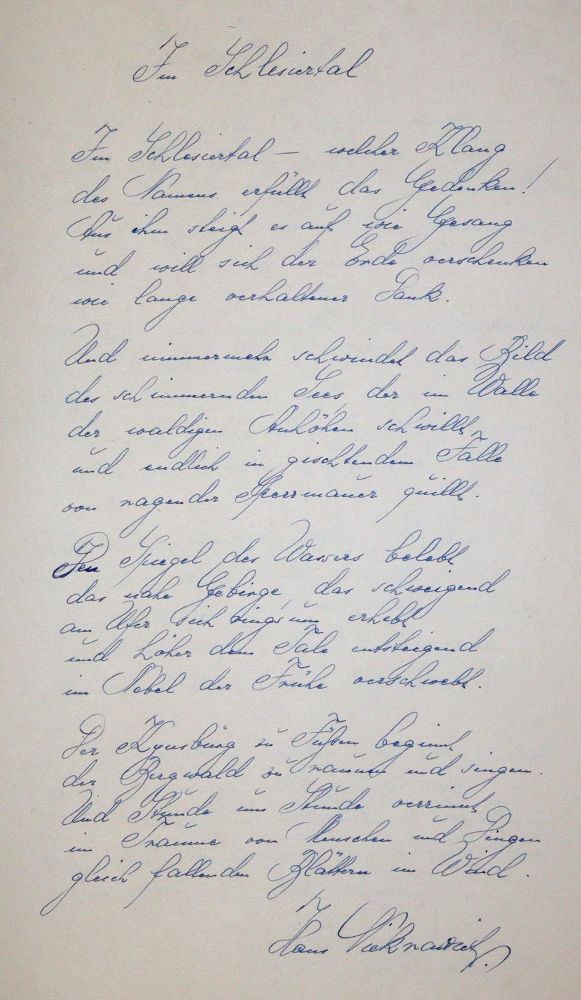 Im Schlesiertal
Im Schlesiertal – welcher Klang
des Namens erfüllt das Gedenken!
Aus ihm steigt es auf wie Gesang
und will sich der Erde verschenken
wie lange verhaltener Dank.
Und nimmermehr schwindet das Bild
des schimmernden Sees, der im Walle
der waldigen Anhöhen schwillt
und endlich in gischtendem Falle
von ragender Sperrmauer quillt.
Den Spiegel des Wassers belebt
das nahe Gebirge, das schweigend
am Ufer sich ringsum erhebt
und höher dem Tale entsteigend
im Nebel der Frühe verschwebt.
Der Kynsburg zu Füßen beginnt
der Bergwald zu raunen und singen.
Und Stunde um Stunde verrinnt
im Traume von Menschen und Dingen
gleich fallenden Blättern im Wind.
Hans